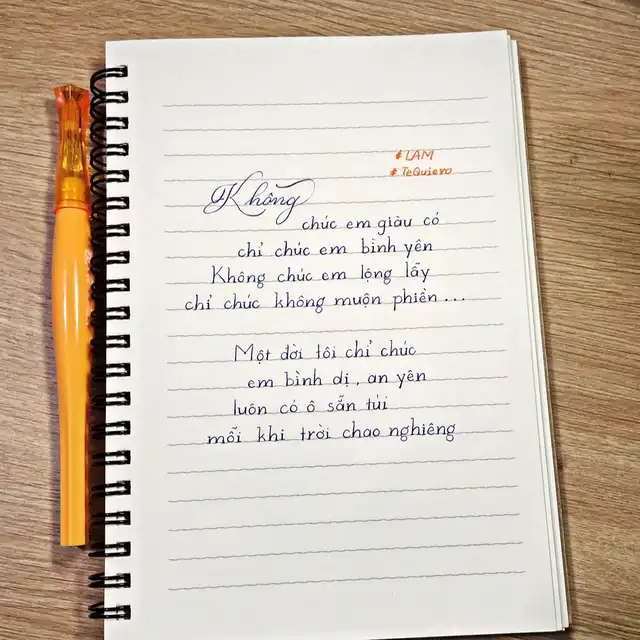 #LAM
#TeQuiero
Không
chúc em giàu có
chỉ chúc em bình yên
Không chúc em lộng lẫy
chỉ chúc không muộn phiền...
Một đời tôi chỉ chúc
em bình dị, an yên
luôn có ô sẵn túi
mỗi khi trời chao nghiêng